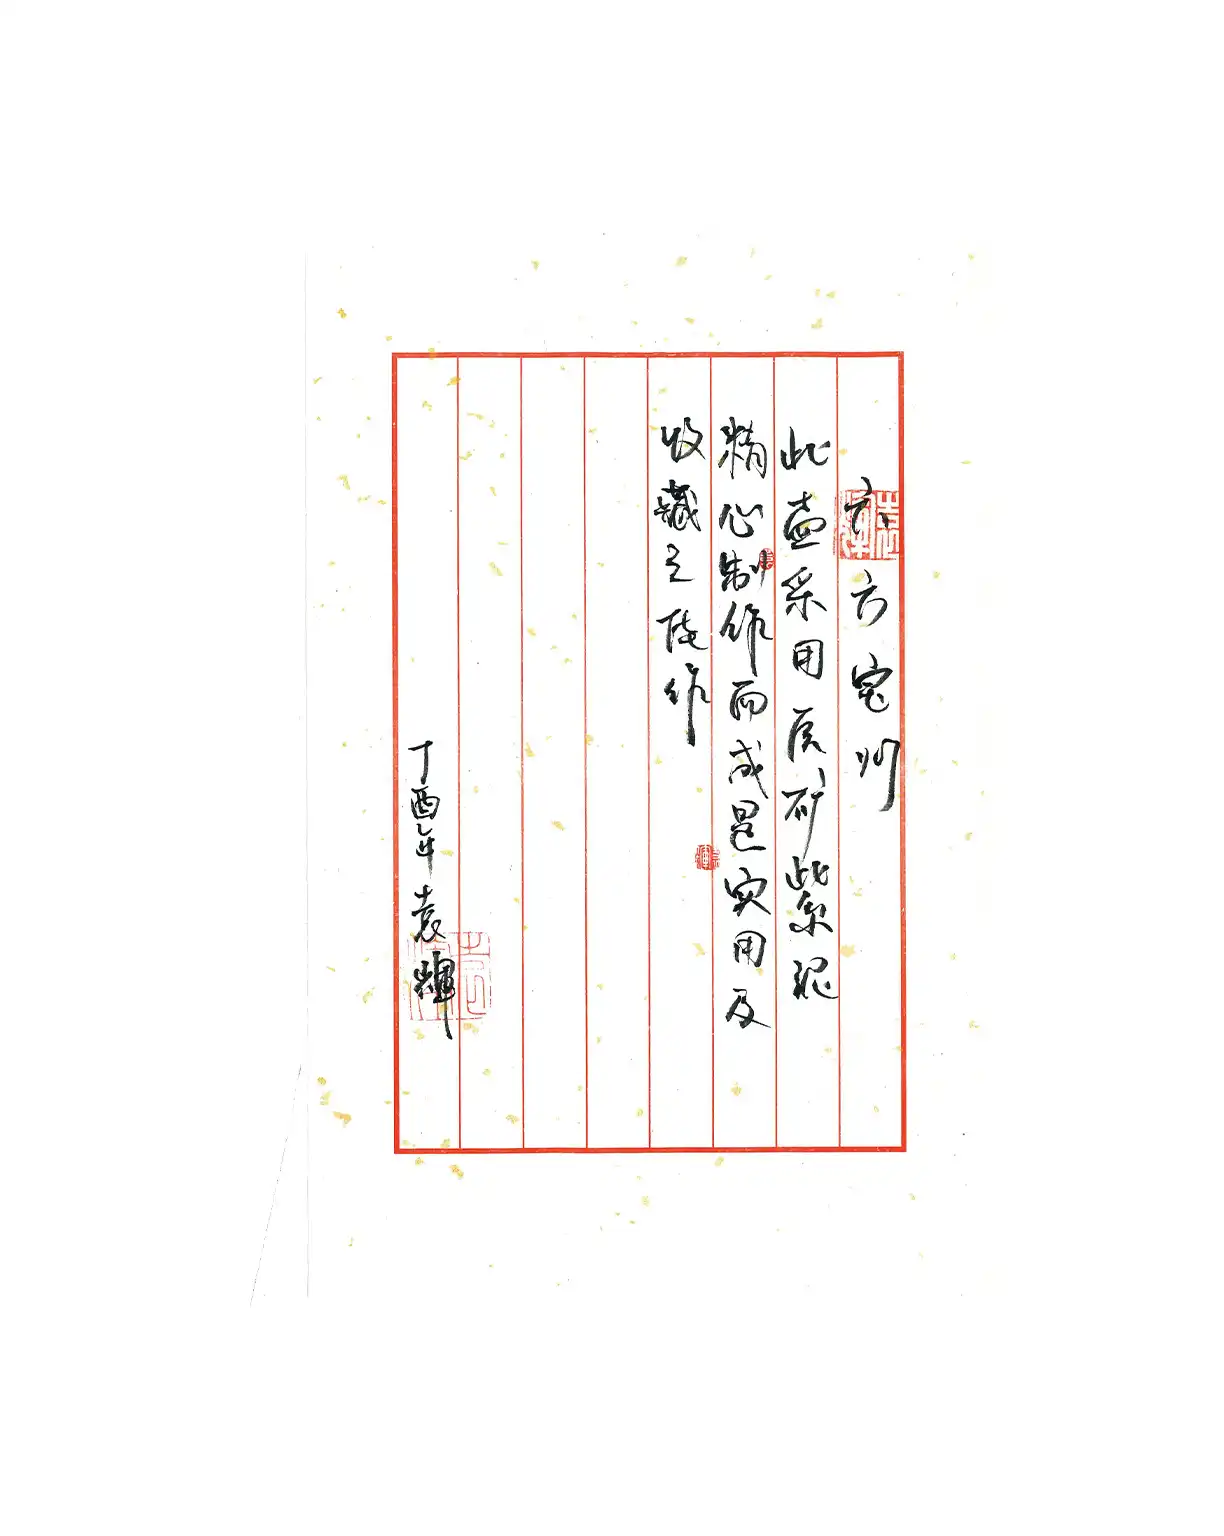 六方
此壶采用原矿紫泥
精心制作而成是实用及
收藏之佳作
丁酉年袁辉